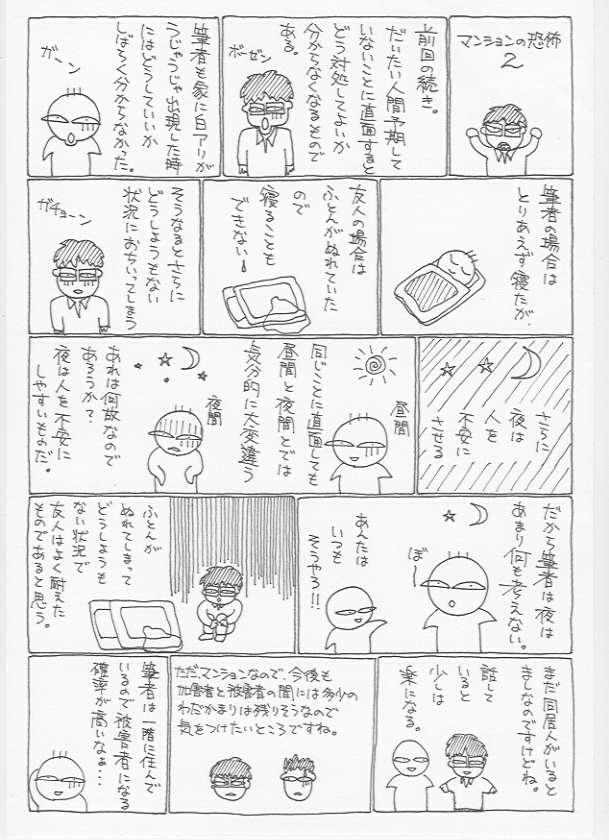 マンションの恐怖
2
前回の続き。
だいたい人間予期して
いないことに直面すると
どう対処してよいか
分からなくなるもので
ある。
ボーゼン
筆者も家に白アリが
うじゃうじゃ出現した時
にはどうしていいか
しばらく分からなかった。
ガーン
筆者の場合は
とりあえず寝たが、
友人の場合は
ふとんがぬれていた
ので
寝ることも
できない!
そうなるとさらに
どうしようもない
状況におちいってしまう
ガチョーン
さらに
夜は
人を
不安に
させる
昼間
同じことに直面しても
昼間と夜間とでは
気分的に大変違う
夜間
あれは何故なので
あろうか?
夜は人を不安に
しやすいものだ。
だから筆者は夜は
あまり何も考えない。
ぼー
あんたは
いつも
そうやろ!!
ふとんが
ぬれてしまって
どうしようも
ない状況で
友人はよく耐えた
ものであると思う。
まだ同居人がいると
ましなのですけどね。
話して
いると
少しは
楽になる。
ただ、マンションなので、今後も
加害者と被害者の間には多少の
わだかまりは残りそうなので
気をつけたいところですね。
筆者は一階に住んで
いるので被害者になる
確率が高いなぁ・・・